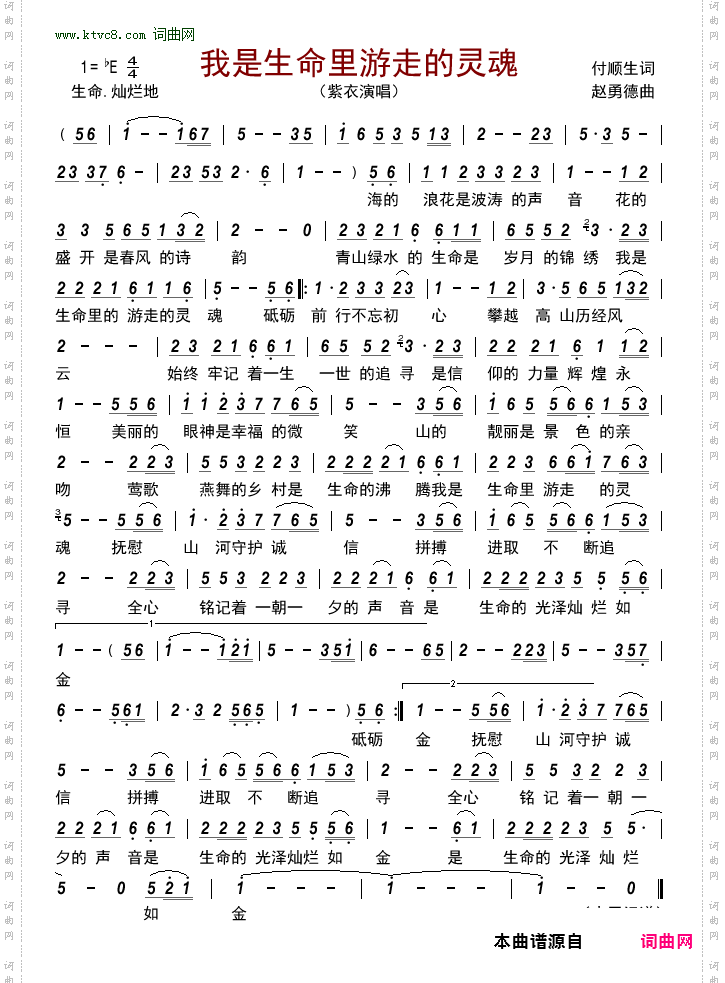 www.ktvc8.com 词曲网
我是生命里游走的灵魂
1=♭E 4/4
付顺生词
生命.灿烂地
（紫衣演唱）
赵勇德曲
(56 | 1--167 | 5--35 | 1653513 | 2--23 | 5·35- |
23376- | 23532·6 | 1--)56 | 11233 23 | 1--12 |
海的 浪花是波涛 的声 音 花的
33565132 | 2--0 | 23216611 | 655223·23 |
盛 开 是春风 的诗 韵 青山绿水 的 生命是 岁月 的锦 绣 我是
22216116 | 5--56 ‖: 1·23323 | 1--12 | 3·565132 |
生命里的 游走的灵 魂 砥砺 前 行不忘初 心 攀越 高 山历经风
2--- | 2321661 | 655223·23 | 222161 112 |
云 始终 牢记 着一生 一世 的追 寻 是信 仰的 力量 辉 煌 永
1--556 | 11237765 | 5--356 | 165566153 |
恒 美丽的 眼神是幸福 的微 笑 山的 靓丽是 景 色 的亲
2--223 | 553223 | 2222161 | 223661763 |
吻 莺歌 燕舞的乡 村是 生命的沸 腾我是 生命里 游走 的灵
35--556 | 1·237765 | 5--356 | 165566153 |
魂 抚慰 山 河守护 诚 信 拼搏 进取 不 断追
2--223 | 553223 | 2221661 | 22223556 |
寻 全心 铭记着 一朝一 夕的 声 音 是 生命的 光泽灿 烂 如
1
1--(56 | 1--121 | 5--351 | 6--65 | 2--223 | 5--357 |
金
2
6--561 | 2·32565 | 1--)56 :‖ 1--556 | 1·237765 |
砥砺 金 抚慰 山 河守护 诚
5--356 | 165566153 | 2--223 | 553223 |
信 拼搏 进取 不 断追 寻 全心 铭 记 着一 朝 一
2221661 | 222235556 | 1--61 | 2222355· |
夕的 声 音是 生命的 光泽灿烂 如 金 是 生命的 光泽 灿 烂
5-0521 | 1--- | 1--- | 1--0 ‖
如 金
本曲谱源自 词曲网
词曲网